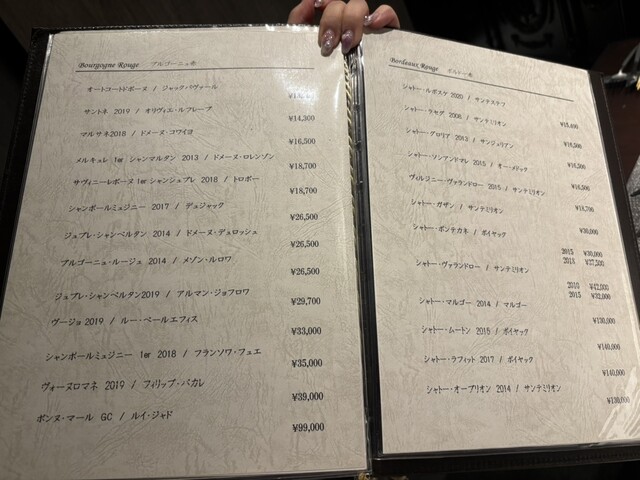 Bourgogne Rouge ブルゴーニュ赤
オートコートドボーヌ / ジャックバヴァール
サントネ 2019 / オリヴィエ・ルフレーブ
¥14,300
マルサネ2018 / ドメーヌ・コワイヨ
¥16,500
メルキュレ 1er シャンマルタン 2013 / ドメーヌ・ロレンゾン
¥18,700
サヴィニーレボーヌ 1er シャンジュプレ 2018 / トロボー
¥18,700
シャンボールミュジニー 2017 / デュジャック
¥26,500
ジュブレ・シャンベルタン 2014 / ドメーヌ・デュロッシュ
¥26,500
ブルゴーニュ・ルージュ 2014 / メゾン・ルロワ
¥26,500
ジュブレ・シャンベルタン2019 / アルマン・ジョフロワ
¥29,700
ヴージョ 2019 / ルー・ペールエフィス
¥33,000
シャンボールミュジニー 1er 2018 / フランソワ・フュエ
¥35,000
ヴォーヌロマネ 2019 / フィリップ・パカレ
¥39,000
ボンヌ・マール GC / ルイ・ジャド
¥99,000
Bordeaux Rouge ボルドー赤
シャトー・ルボスケ 2020 / サンテステフ
¥15,400
シャトー・ 2008 / サンテミリオン
¥16,500
シャトー・グロリア 2013 / サンジュリアン
¥16,500
シャトー・ソシアンドマレ 2015 / オー・メドック
¥16,500
ヴィルジニー・ヴァランドロー 2015 / サンテミリオン
¥18,700
シャトー・ガザン / サンテミリオン
¥30,000
シャトー・ポンテカネ / ポイヤック
2015 ¥30,000
2018 ¥37,500
シャトー・ヴァランドロー / サンテミリオン
2010 ¥42,000
2015 ¥32,000
シャトー・マルゴー 2014 / マルゴー
¥130,000
シャトー・ムートン 2015 / ポイヤック
¥140,000
シャトー・ラフィット 2017 / ポイヤック
¥140,000
シャトー・オーブリオン 2014 / サンテミリオン
¥130,000